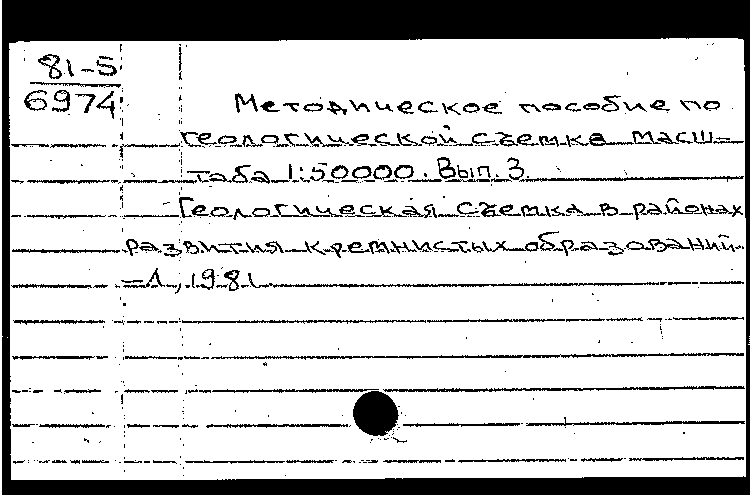 81-5
6974
Методическое пособие по
геологической съемке масш-
таба 1:50000. Вып. 3.
Геологическая съемка в районах
развития кремнистых образований.
-Л, 1981.